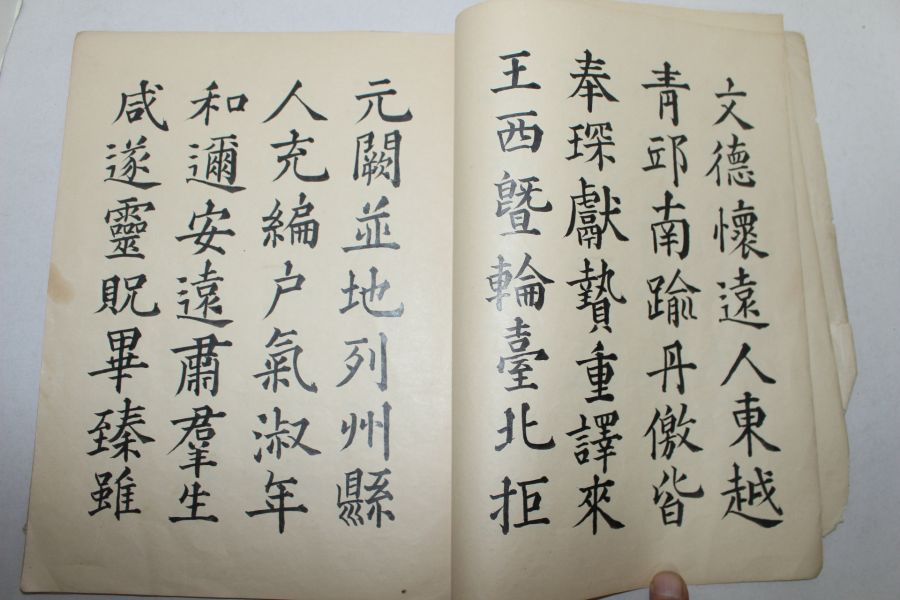 文德懷遠人東越
青邱南踰丹儌皆
奉琛獻贄重譯來
王西曁輪臺北拒
元闕並地列州縣
人充編戶氣淑年
和邇安遠肅羣生
咸遂靈貺畢臻雖